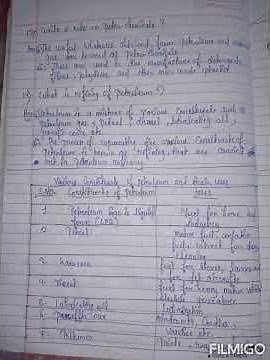 Write a note on petro chemicals ?
Ans The useful substances obtained from petroleum and natural
gas are termed as petro-chemicals
These are used in the manufacture of detergents,
fibres, polythene and other man made plastics
What is refining of petroleum ?
Ans Petroleum is a mixture of various constituents such as
petroleum gas, petrol, diesel, lubricating oil,
paraffin wax etc
The process of separating the various constituents of
petroleum is known as refining, that are carried
out in petroleum refinery
Various Constituents of petroleum and their uses
S.No Constituents of petroleum uses
1 Petroleum Gas in liquid fuel for home and
form (LPG) industry
2 Petrol Motor fuel, aviation
fuel, solvent for dry
cleaning
3. Kerosene fuel for stoves, lamps and
for jet aircrafts
4. Diesel fuel for heavy motor vehicles
electric generators
5. Lubricating oil lubrication
6. Paraffin wax ointments, Candles,
Vaseline etc
7. Bitumen Paints,
FILMIGO